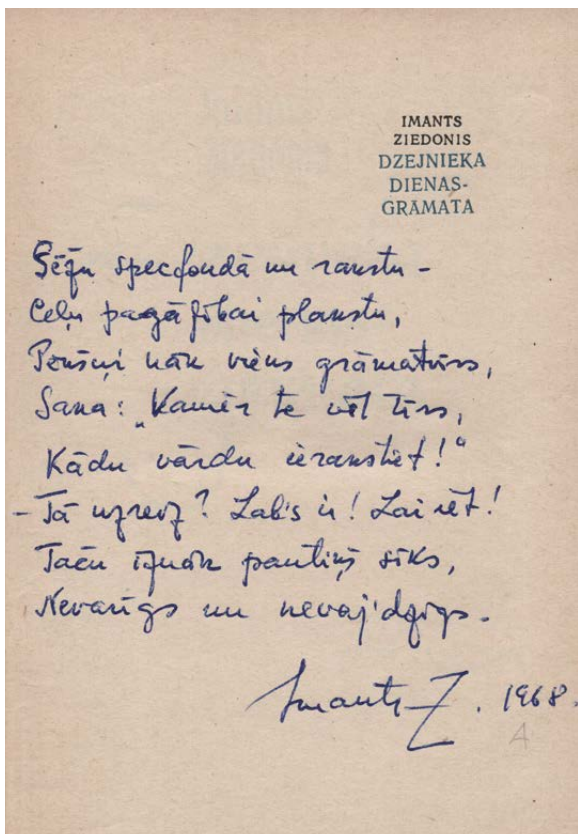 IMANTS
ZIEDONIS
DZEJNIEKA
DIENAS-
GRĀMATA
Sēžu specfondā un rakstu –
Ceļu pagātībai plakstu,
Pēkšņi nāk viens grāmatvīrs,
Saka: "Kamēr te vēl tīrs,
Kādu vārdu ierakstiet!"
– Tā uzreiz? Labs ir! Lai iet!
Taču iznāk pantiņš sīks,
Nevarīgs un nevaj'dzīgs.
Imants Z. 1968.